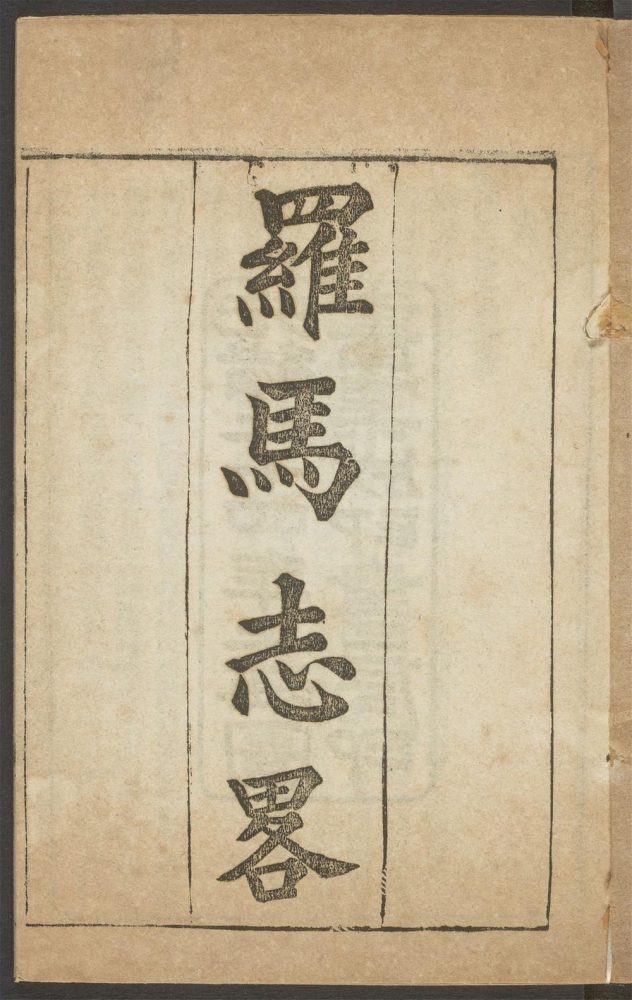 羅馬志畧